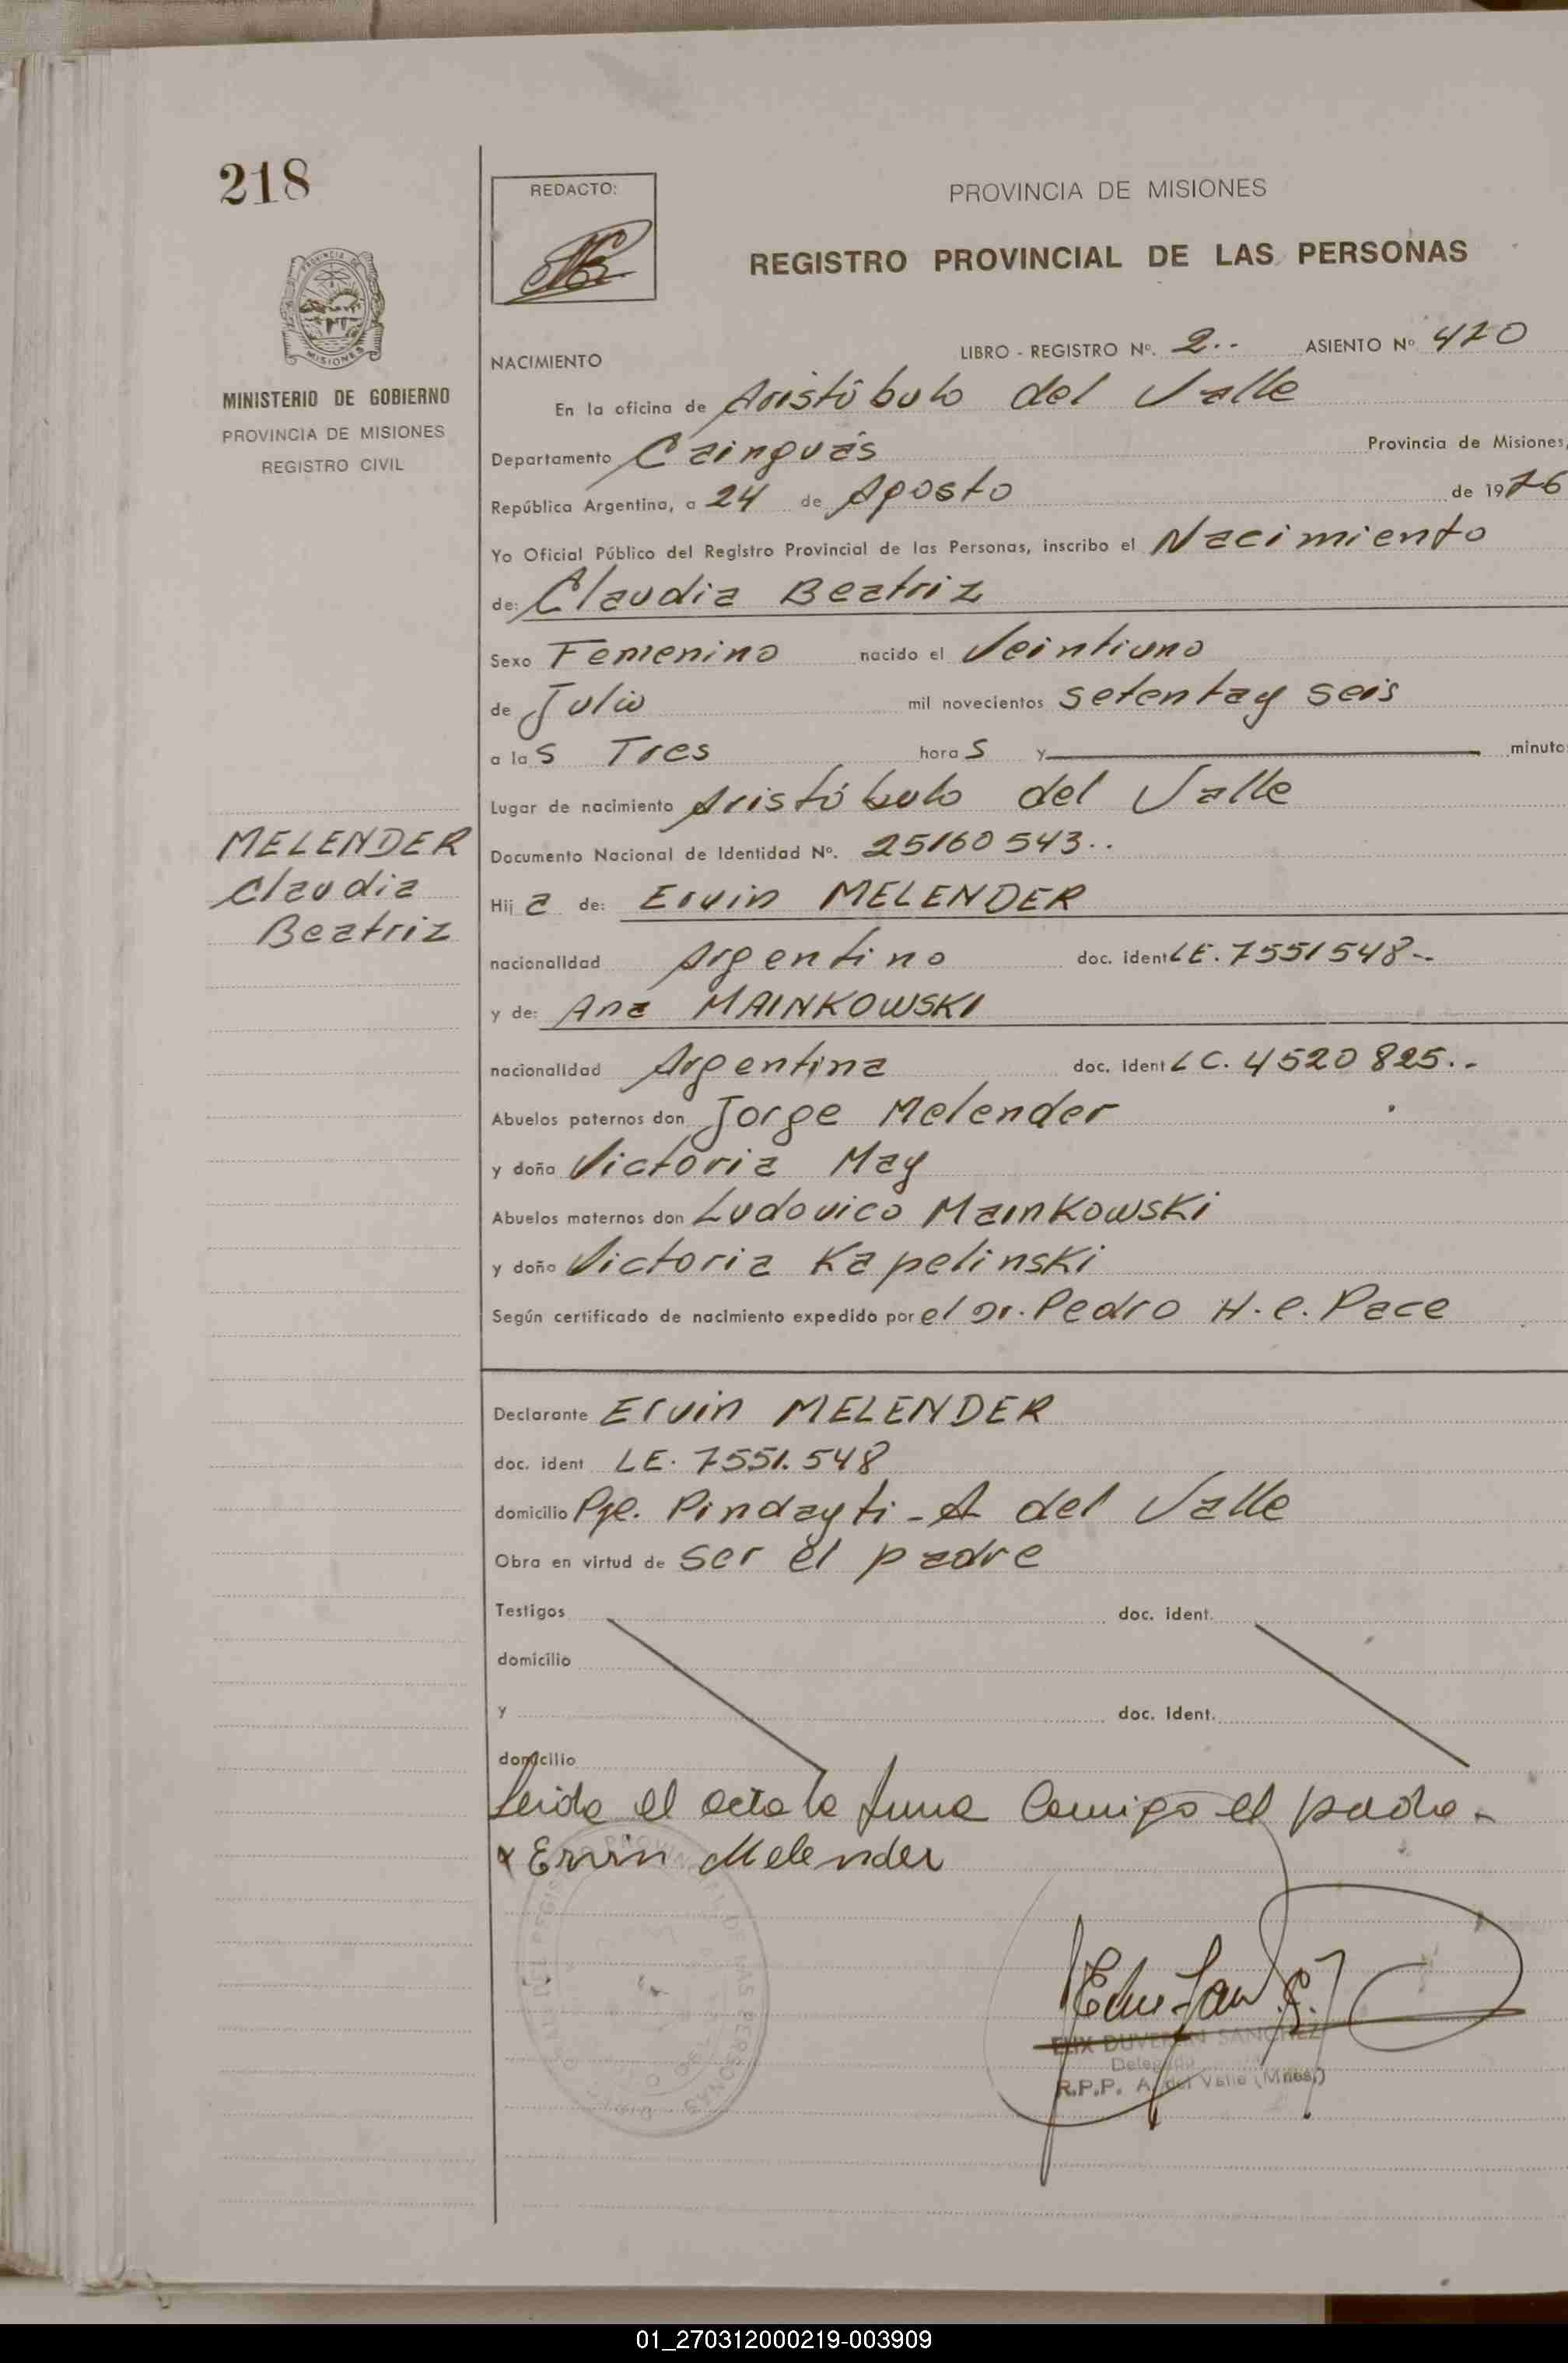 218
REDACTO:
PROVINCIA DE MISIONES
REGISTRO PROVINCIAL DE LAS PERSONAS
MINISTERIO DE GOBIERNO
PROVINCIA DE MISIONES
REGISTRO CIVIL
NACIMIENTO
LIBRO - REGISTRO Nº. 2.. ASIENTO Nº 420
En la oficina de Aristóbulo del Valle
Departamento Cainguás Provincia de Misiones,
República Argentina, a 24 de Agosto de 1976
Yo Oficial Público del Registro Provincial de las Personas, inscribo el Nacimiento
de: Claudia Beatriz
Sexo Femenino nacido el Veintiuno
de Julio mil novecientos setentay seis
a las Tres horas y minuto
Lugar de nacimiento Aristóbulo del Valle
MELENDER
Claudia
Beatriz
Documento Nacional de Identidad Nº. 25160543..
Hija de: Ervin MELENDER
nacionalidad Argentino doc. ident LE. 7551548-.
y de: Ana MAINKOWSKI
nacionalidad Argentina doc. ident LC. 4520825..
Abuelos paternos don Jorge Melender
y doña Victoria May
Abuelos maternos don Ludovico Mainkowski
y doña Victoria Kapelinski
Según certificado de nacimiento expedido por el Dr. Pedro H. C. Pace
Declarante Ervin MELENDER
doc. ident LE. 7551.548
domicilio Pje. Pindayti - A del Valle
Obra en virtud de ser el padre
Testigos doc. ident.
domicilio
y doc. ident.
domicilio
Leida el acta la firma Conmigo el padre.
x Ervin Melender
ELIX DUVERLAN SANCHEZ
Delegado
R.P.P. A. del Valle (Mnes.)
01_270312000219-003909